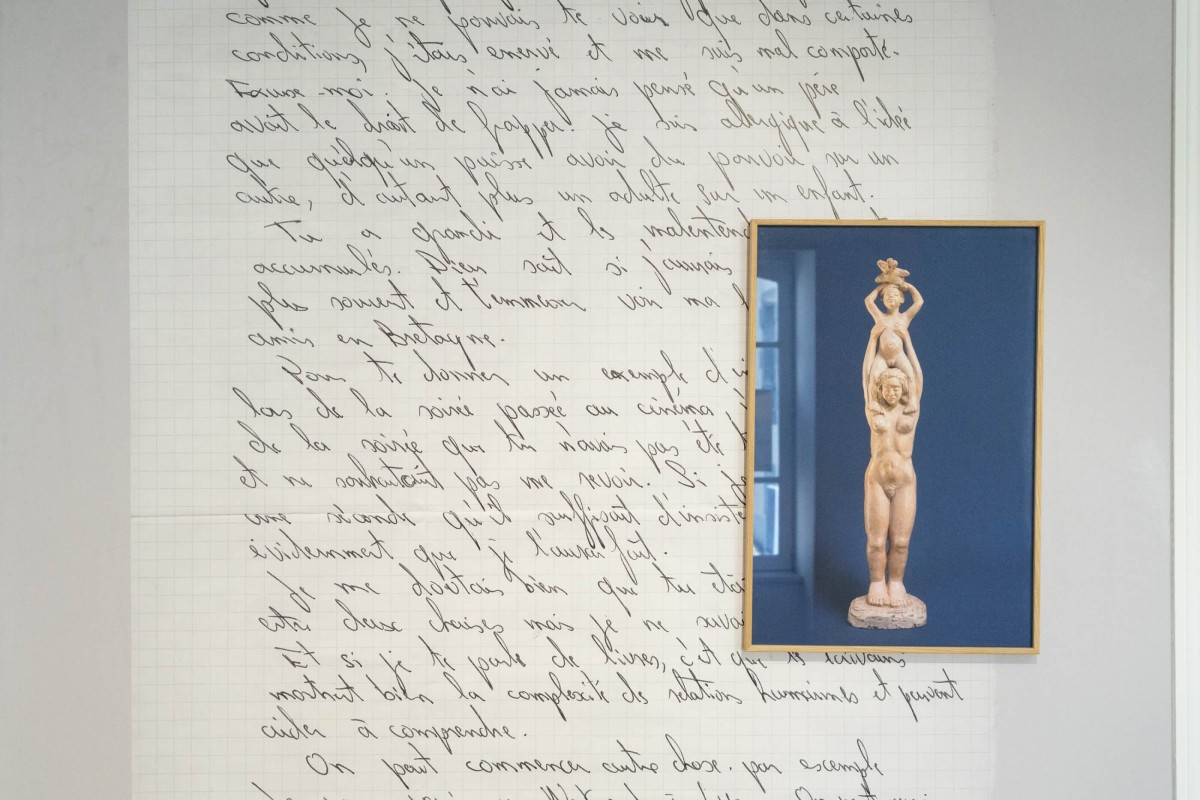 comme je ne pouvais te voir que dans certaines
conditions, j'étais enervé et me suis mal comporté.
Excuse-moi. Je n'ai jamais pensé qu'un père
avait le droit de frapper. Je suis allergique à l'idée
que quelqu'un puisse avoir du pouvoir sur un
autre, d'autant plus un adulte sur un enfant.
Tu a grandi et les malentend
accumulés. Dieu sait si j'aurais
plus souvent et t'emmener voir ma
amis en Bretagne.
Pour te donner un exemple d'i
lors de la soirée passée au cinéma
de la soirée que tu n'avais pas été
et ne souhaitait pas me revoir. Si je
une seconde qu'il suffisait d'insiste
évidemment que je l'aurai fait.
Je me doutais bien que tu étai
entre deux chaises mais je ne savai
Et si je te parle de livres, c'est que les écrivains
montrent bien la complexité des relations humaines et peuvent
aider à comprendre.
On peut commencer autre chose. par exemple